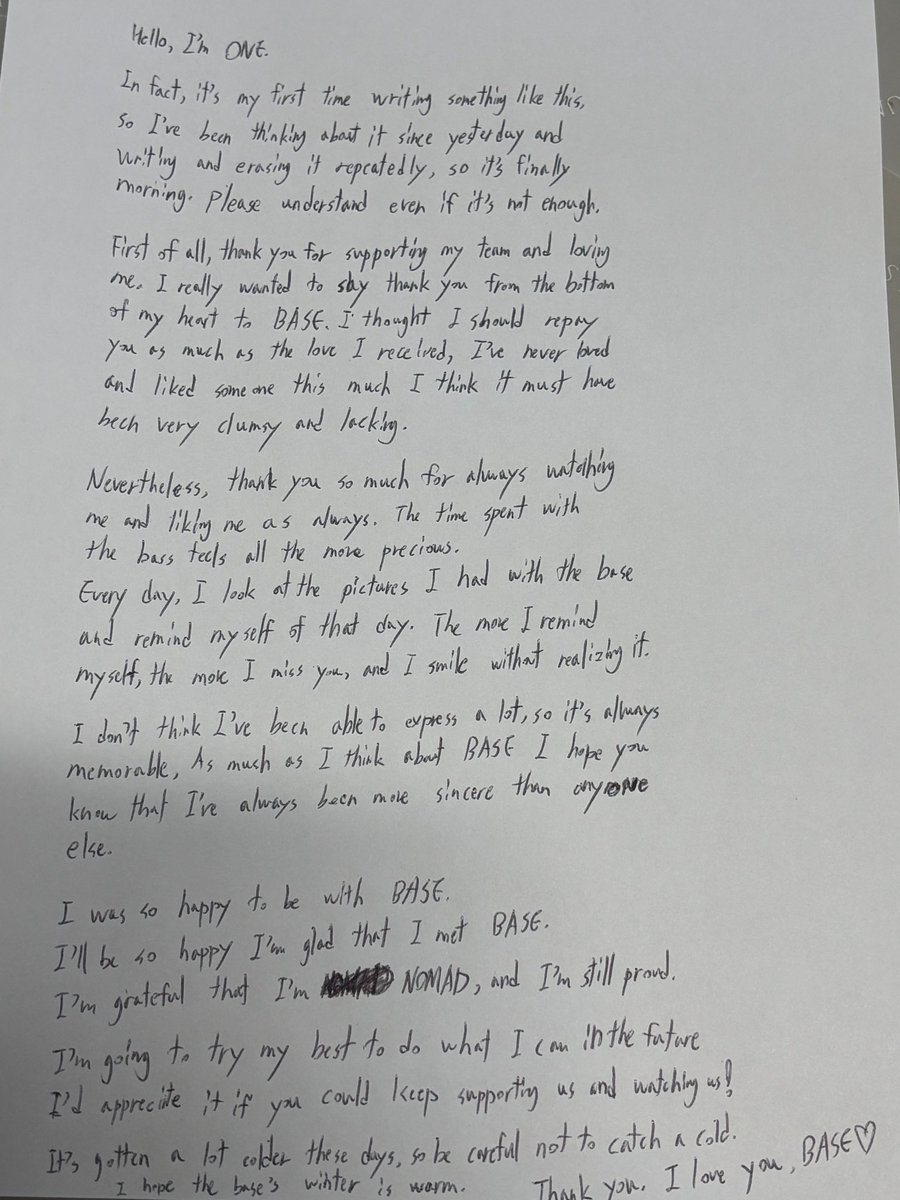 Hello, I'm ONE.
In fact, it's my first time writing something like this,
so I've been thinking about it since yesterday and
writing and erasing it repeatedly, so it's finally
morning. Please understand even if it's not enough.
First of all, thank you for supporting my team and loving
me. I really wanted to say thank you from the bottom
of my heart to BASE. I thought I should repay
you as much as the love I received, I've never loved
and liked someone this much I think it must have
been very clumsy and lacking.
Nevertheless, thank you so much for always watching
me and liking me as always. The time spent with
the bass feels all the more precious.
Every day, I look at the pictures I had with the base
and remind myself of that day. The more I remind
myself, the more I miss you, and I smile without realizing it.
I don't think I've been able to express a lot, so it's always
memorable, As much as I think about BASE I hope you
know that I've always been more sincere than anyONE
else.
I was so happy to be with BASE.
I'll be so happy I'm glad that I met BASE.
I'm grateful that I'm NOMAD, and I'm still proud.
I'm going to try my best to do what I can in the future
I'd appreciate it if you could keep supporting us and watching us!
It's gotten a lot colder these days, so be careful not to catch a cold.
I hope the base's winter is warm. Thank you. I love you, BASE♡